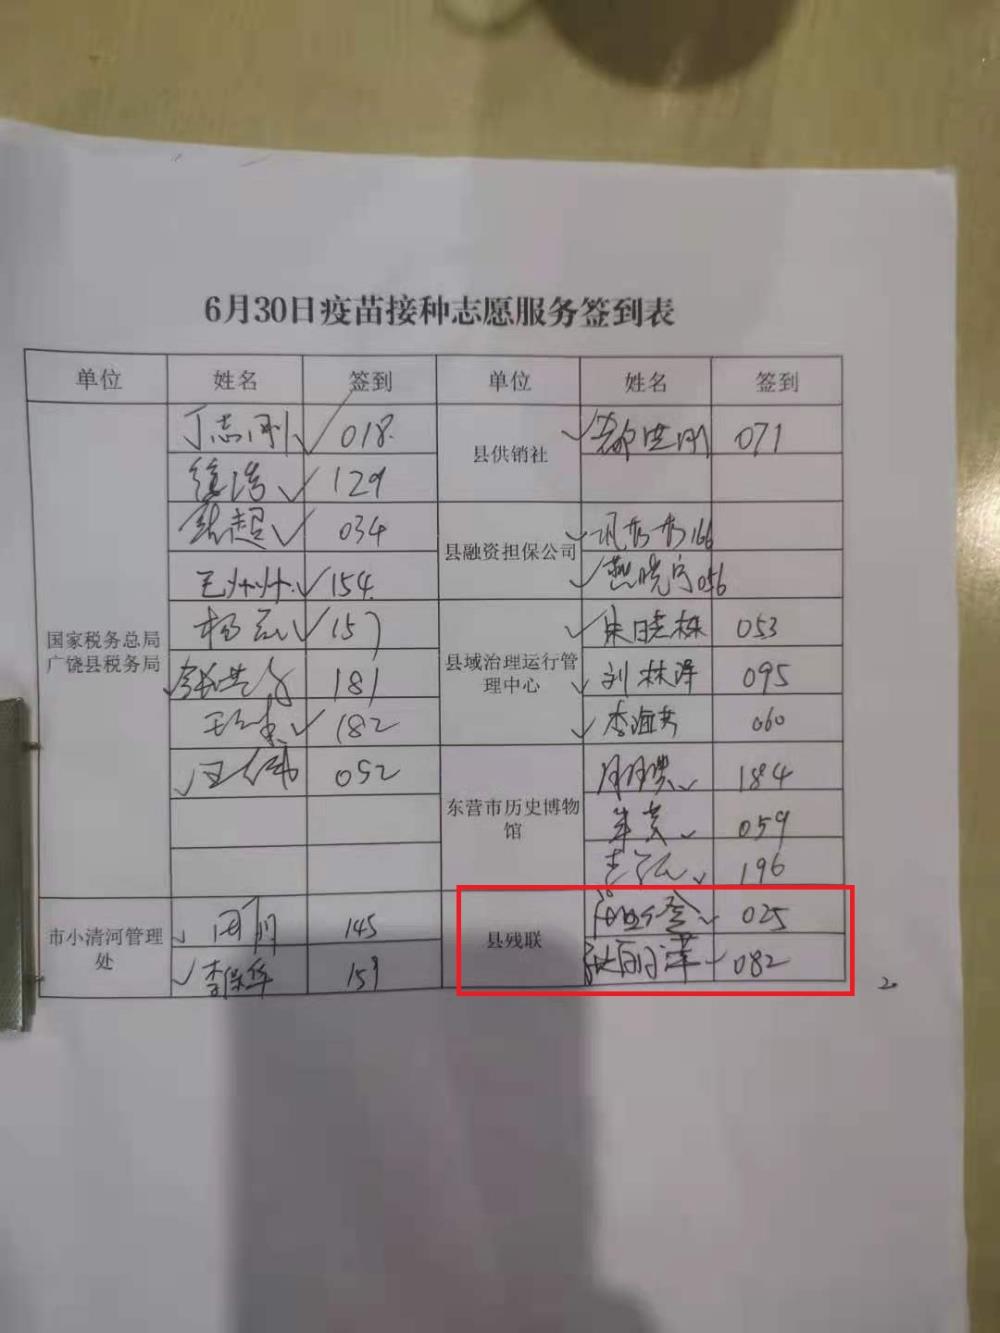 6月30日疫苗接种志愿服务签到表
单位 姓名 签到 单位 姓名 签到
国家税务总局
广饶县税务局
丁志刚 018
徐浩 129
张超 034
王州州 154
杨 157
张洪 181
王 182
王伟 052
县供销社
洪刚 071
县融资担保公司
巩秀秀 166
燕晓宁 056
县域治理运行管
理中心
朱晓栋 053
刘林泽 095
李海英 060
东营市历史博物
馆
184
朱英 059
196
市小清河管理
处
周 145
李保华 159
县残联
025
082
2